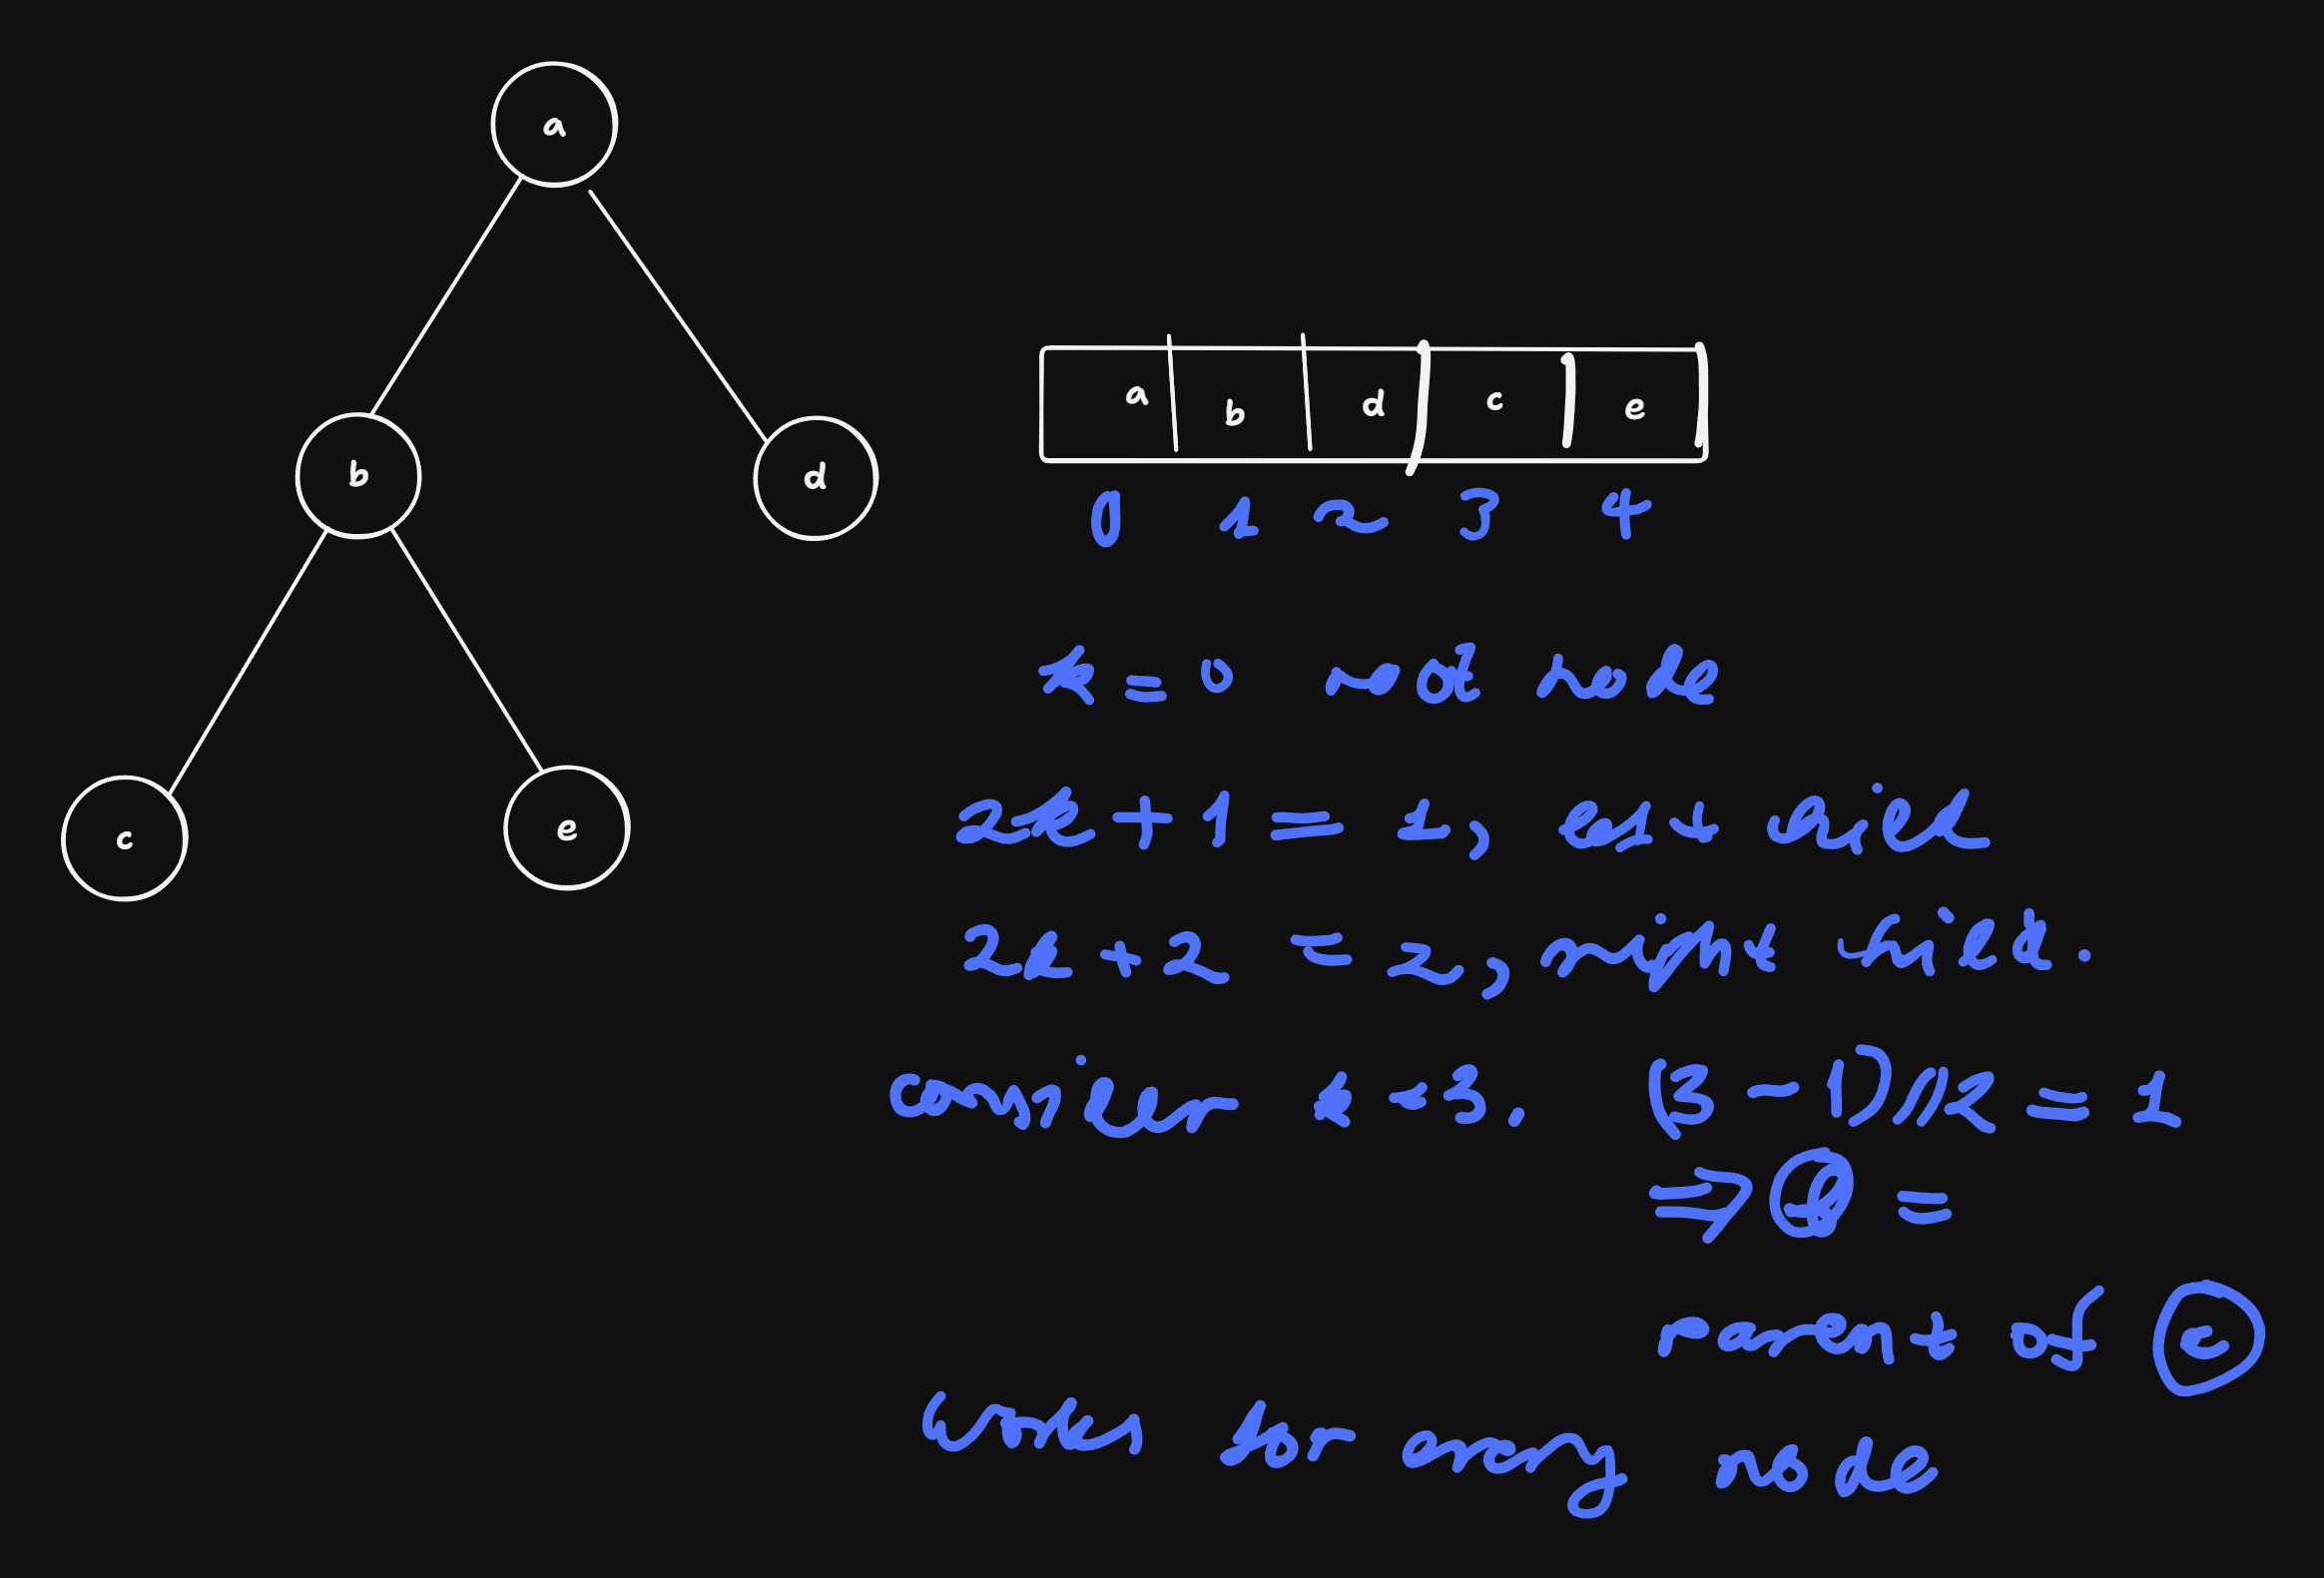 a
b d
c e
a b d c e
0 1 2 3 4
k = 0 root node
2k + 1 = 1, left child
2k + 2 = 2, right child.
consider k = 3. (3 - 1)/2 = 1
⇒ =
parent of e
Works for any node